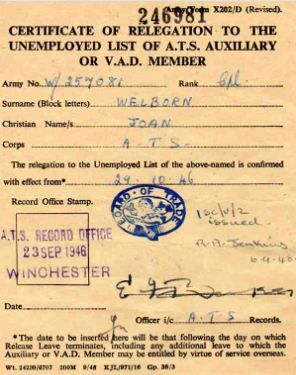 246981
Army Form X202/D (Revised).
CERTIFICATE OF RELEGATION TO THE
UNEMPLOYED LIST OF A.T.S. AUXILIARY
OR V.A.D. MEMBER
Army No. W/257081 Rank Cpl
Surname (Block letters) WELBORN
Christian Name/s JOAN
Corps A.T.S.
The relegation to the Unemployed List of the above-named is confirmed
with effect from* 29-10-46
Record Office Stamp.
BOARD OF TRADE
issued.
A.T.S. RECORD OFFICE
23 SEP 1946
WINCHESTER
R.A. Jenkins
Date
Officer i/c A.T.S Records.
* The date to be inserted here will be that following the day on which
Release Leave terminates, including any additional leave to which the
Auxiliary or V.A.D. Member may be entitled by virtue of service overseas.
Wt. 24239/6707 200M 9/45 KJL/971/16 Gp. 38/3